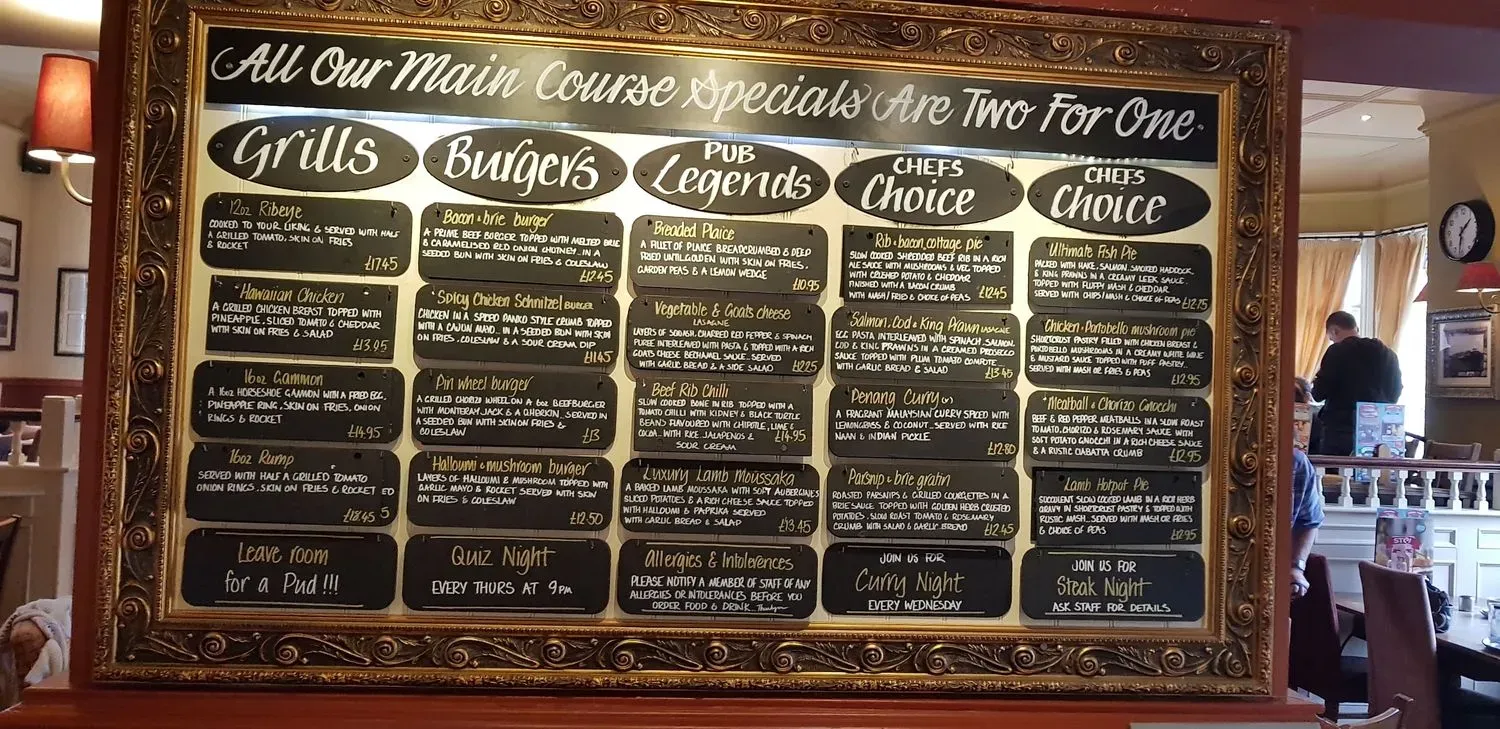 All Our Main Course Specials Are Two For One
Grills
12oz Ribeye
COOKED TO YOUR LIKING & SERVED WITH HALF
A GRILLED TOMATO, SKIN ON FRIES
& ROCKET
£17.45
Hawaiian Chicken
A GRILLED CHICKEN BREAST TOPPED WITH
PINEAPPLE, SLICED TOMATO & CHEDDAR
WITH SKIN ON FRIES & SALAD
£13.95
16oz Gammon
A 16oz HORSESHOE GAMMON WITH A FRIED EGG,
PINEAPPLE RING, SKIN ON FRIES, ONION
RINGS & ROCKET
£14.95
16oz Rump
SERVED WITH HALF A GRILLED TOMATO
ONION RINGS, SKIN ON FRIES & ROCKET
£18.45
Leave room
for a Pud !!!
Burgers
Bacon & brie burger
A PRIME BEEF BURGER TOPPED WITH MELTED BRIE
& CARAMELISED RED ONION CHUTNEY...IN A
SEEDED BUN WITH SKIN ON FRIES & COLESLAW
£12.45
Spicy Chicken Schnitzel BURGER
CHICKEN IN A SPICED PANKO STYLE CRUMB TOPPED
WITH A CAJUN MAYO...IN A SEEDED BUN WITH SKIN
ON FRIES, COLESLAW & A SOUR CREAM DIP
£11.45
Pin wheel burger
A GRILLED CHORIZO WHEEL ON A 6oz BEEFBURGER
WITH MONTERAY JACK & A GHERKIN...SERVED IN
A SEEDED BUN WITH SKIN ON FRIES &
COLESLAW
£13
Halloumi & mushroom burger
LAYERS OF HALLOUMI & MUSHROOM TOPPED WITH
GARLIC MAYO & ROCKET SERVED WITH SKIN
ON FRIES & COLESLAW
£12.50
Quiz Night
EVERY THURS AT 9PM
PUB
Legends
Breaded Plaice
A FILLET OF PLAICE BREADCRUMBED & DEEP
FRIED UNTIL GOLDEN WITH SKIN ON FRIES,
GARDEN PEAS & A LEMON WEDGE
£10.95
Vegetable & Goats cheese
LASAGNE
LAYERS OF SQUASH, CHARRED RED PEPPER & SPINACH
PUREE INTERLEAVED WITH PASTA & TOPPED WITH A RICH
GOATS CHEESE BECHAMEL SAUCE...SERVED
WITH GARLIC BREAD & A SIDE SALAD
£12.25
Beef Rib Chilli
SLOW COOKED BONE IN RIB TOPPED WITH A
TOMATO CHILLI WITH KIDNEY & BLACK TURTLE
BEANS FLAVOURED WITH CHIPOTLE, LIME &
COCOA...WITH RICE, JALAPENOS &
SOUR CREAM
£14.95
Luxury Lamb Moussaka
A BAKED LAMB MOUSSAKA WITH SOFT AUBERGINES
SLICED POTATOES & A RICH CHEESE SAUCE TOPPED
WITH HALLOUMI & PAPRIKA SERVED
WITH GARLIC BREAD & SALAD
£13.45
Allergies & Intolerences
PLEASE NOTIFY A MEMBER OF STAFF OF ANY
ALLERGIES OR INTOLERANCES BEFORE YOU
ORDER FOOD & DRINK...Thankyou
CHEFS
Choice
Rib & bacon cottage pie
SLOW COOKED SHREDDED BEEF RIB IN A RICH
ALE SAUCE WITH MUSHROOMS & VEG TOPPED
WITH CRUSHED POTATO & CHEDDAR
FINISHED WITH A BACON CRUMB
WITH MASH/FRIES & CHOICE OF PEAS
£12.45
Salmon, Cod & King Prawn LASAGNE
EGG PASTA INTERLEAVED WITH SPINACH, SALMON,
COD & KING PRAWNS IN A CREAMED PROSECCO
SAUCE TOPPED WITH PLUM TOMATO COMPOTE
WITH GARLIC BREAD & SALAD
£13.45
Penang Curry (V)
A FRAGRANT MALAYSIAN CURRY SPICED WITH
LEMONGRASS & COCONUT...SERVED WITH RICE
NAAN & INDIAN PICKLE
£12.80
Parsnip & brie gratin
ROASTED PARSNIPS & GRILLED COURGETTES IN A
BRIE SAUCE TOPPED WITH GOLDEN HERB CRUSTED
POTATOES, SLOW ROAST TOMATO & ROSEMARY
CRUMB WITH SALAD & GARLIC BREAD
£12.45
JOIN US FOR
Curry Night
EVERY WEDNESDAY
CHEFS
Choice
Ultimate Fish Pie
PACKED WITH HAKE, SALMON, SMOKED HADDOCK,
& KING PRAWNS IN A CREAMY LEEK SAUCE,
TOPPED WITH FLUFFY MASH & CHEDDAR
SERVED WITH CHIPS/MASH & CHOICE OF PEAS
£12.75
Chicken & Portobello mushroom pie
SHORTCRUST PASTRY FILLED WITH CHICKEN BREAST &
PORTOBELLO MUSHROOMS IN A CREAMY WHITE WINE
& MUSTARD SAUCE TOPPED WITH PUFF PASTRY...
SERVED WITH MASH OR FRIES & PEAS
£12.95
Meatball & Chorizo Gnocchi
BEEF & RED PEPPER MEATBALLS IN A SLOW ROAST
TOMATO, CHORIZO & ROSEMARY SAUCE WITH
SOFT POTATO GNOCCHI IN A RICH CHEESE SAUCE
& A RUSTIC CIABATTA CRUMB
£12.95
Lamb Hotpot Pie
SUCCULENT SLOW COOKED LAMB IN A RICH HERB
GRAVY IN SHORTCRUST PASTRY & TOPPED WITH
RUSTIC MASH...SERVED WITH MASH OR FRIES
& CHOICE OF PEAS
£12.95
JOIN US FOR
Steak Night
ASK STAFF FOR DETAILS